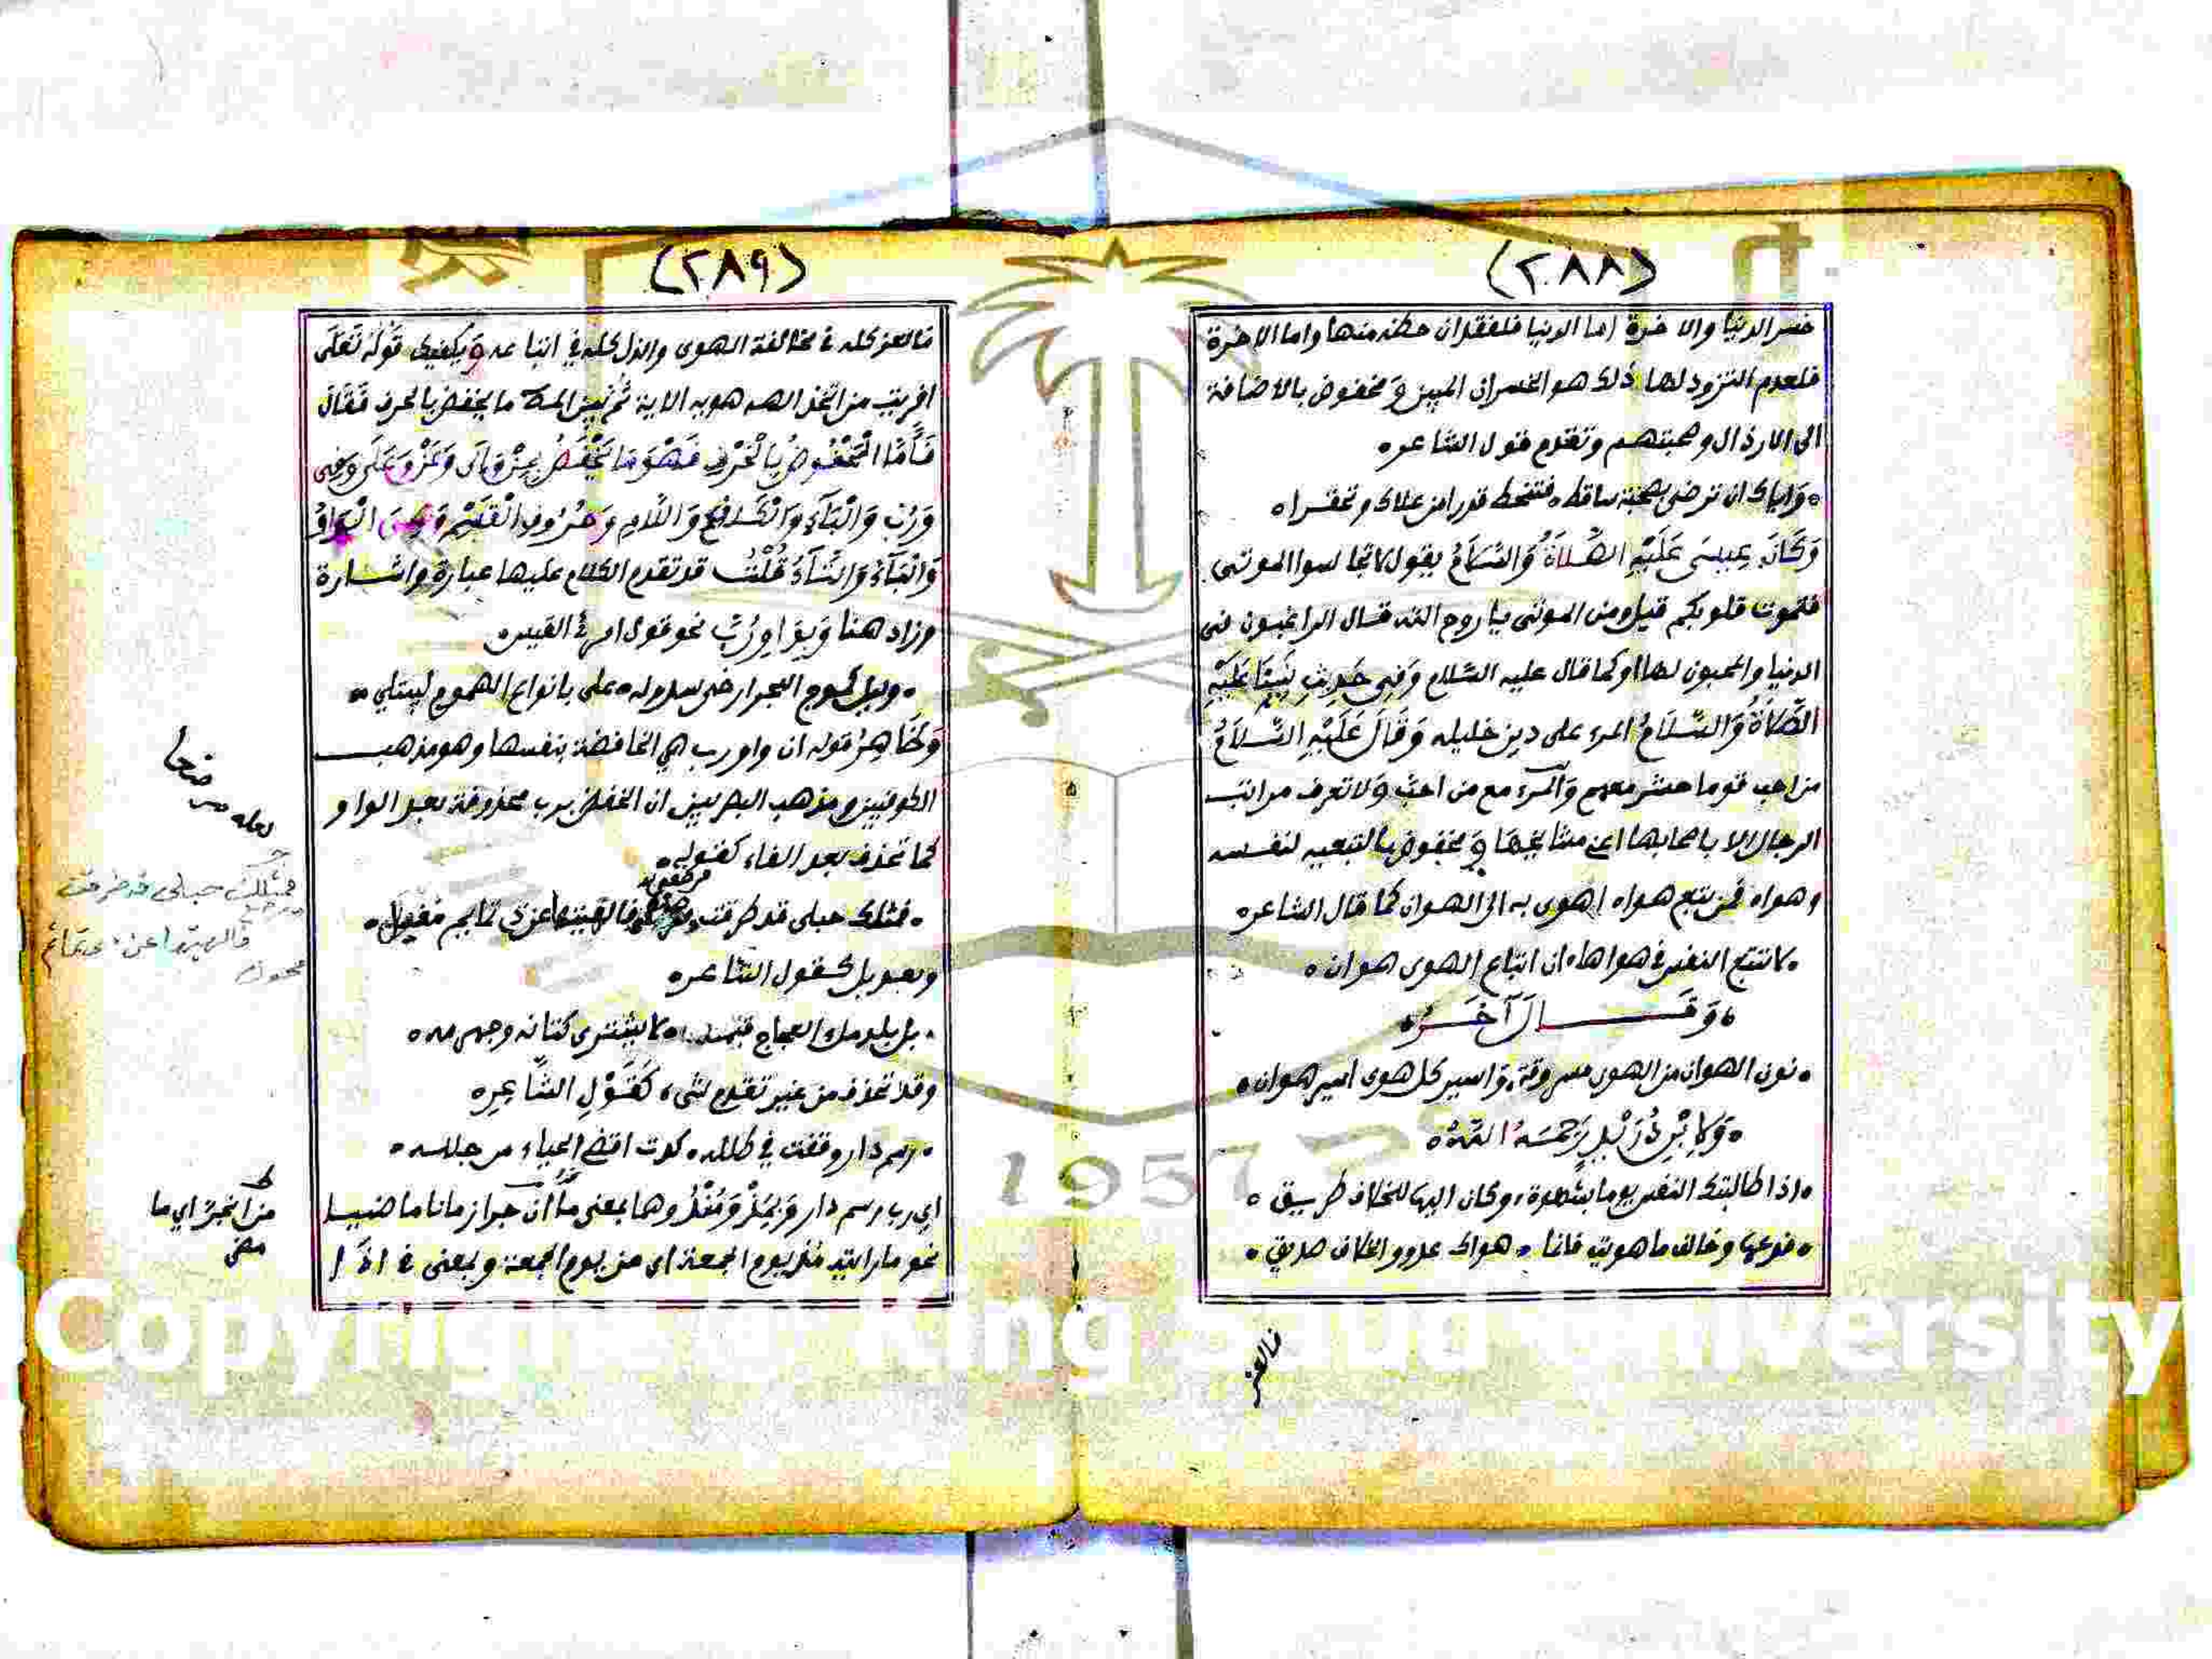 (٢٨٨)
خسر الدنيا والاخرة اما الدنيا فلفقدان حظه منها واما الاخرة
فلعدم التزود لها ذلك هو الخسران المبين وَمخفوض بالاضافة
الى الارذال وصحبتهم وتقدم قول الشاعر
واياك ان ترضى بصحبة ساقط فتنحط قدرا من علاك وتحقرا
وَكَانَ عِيسَى عَلَيْهِ الصَّلاَةُ وَالسَّلاَمُ يقول لا تجالسوا الموتى
فتموت قلوبكم قيل ومن الموتى يا روح الله قال الراغبون فى
الدنيا والمحبون لها او كما قال عليه السّلام وَفِى حَدِيثِ نَبِيِّنَا عَلَيْهِ
الصَّلاَةُ وَالسَّلاَمُ المرء على دين خليله وَقَالَ عَلَيْهِ السَّلاَمُ
من احب قوما حشر معهم وَالمرء مع من احبّ وَلا تعرف مراتب
الرجال الا باصحابها اعنى مشايخها وَمخفوض بالتبعية لنفسه
وهواه فمن يتبع هواه اهوى به الى الهوان كما قال الشاعر
لا تتبع النفس فى هواها ان اتباع الهوى هوان
وَقَــالَ آخَـرُ
نون الهوان من الهوى مسروقة واسير كل هوى اسير هوان
وَلابْنِ دُرَيْدٍ رَحِمَهُ اللَّهُ
اذا طالبتك النفس يوما بشهوة وكان اليها للخلاف طريق
فدعها وخالف ما هويت فانما هواك عدو والخلاف صديق
فالعز
(٢٨٩)
فالعز كله فى مخالفة الهوى والذل كله في اتباعه وَيكفيك قَوْلُهُ تَعَلَى
افريت من اتخذ الهه هويه الاية ثُمّ بَيّنَ المص ما يخفض بالحرف فَقَالَ
فَأَمَّا الْمَخْفُوضُ بِالْحَرْفِ فَهْوَ مَا يُخْفَضُ بِمِنْ وَإِلَى وَعَنْ وَعَلَى وَفِى
وَرُبَّ وَالْبَآءِ وَالْكَافِ وَاللَّامِ وَحُرُوفِ الْقَسَمِ وَهِىَ الْوَاوُ
وَالْبَآءُ وَالتَّآءُ قُلْتُ قد تقدم الكلام عليها عبارة واشــارة
وزاد هنا وَبِوَاوِ رُبَّ نحو قول امرئ القيس
وليل كموج البحر ارخى سدوله على بانواع الهموم ليبتلي
وَظَاهِرُ قوله ان واو رب هي الخافضة بنفسها وهو مذهب
الكوفيين ومذهب البصريين ان الخفض برب محذوفة بعد الواو
كما تحذف بعد الفاء كقوله
فمثلك حبلى قد طرقت ومرضع فالهيتها عن ذى تمايم مغيل
وبعد بل كقول الشاعر
بل بلد ملء العجاج قتمه لا يشترى كتانه وجهرمه
وقد تحذف من غير تقدم شىء كَقَوْلِ الشَّاعِرِ
رسم دار وقفت في طلله كدت اقضى الحياء من جلله
اي رب رسم دار وَبِمُذْ وَمُنْذُ وهما بمعنى من ان جرا زمانا ماضيــا
نحو ما رايته مُذْ يوم الجمعة اى من يوم الجمعة وبمعنى فى اذَا
لعله
فمثلك حبلى قد طرقت
ومرضع
فالهيتها عن ذى تمائم
محول
مضى